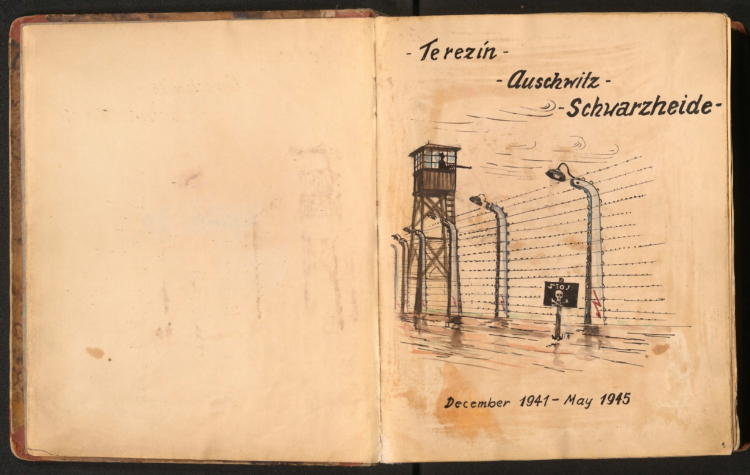 - Terezín -
- Auschwitz -
- Schwarzheide -
STOJ
December 1941 - May 1945